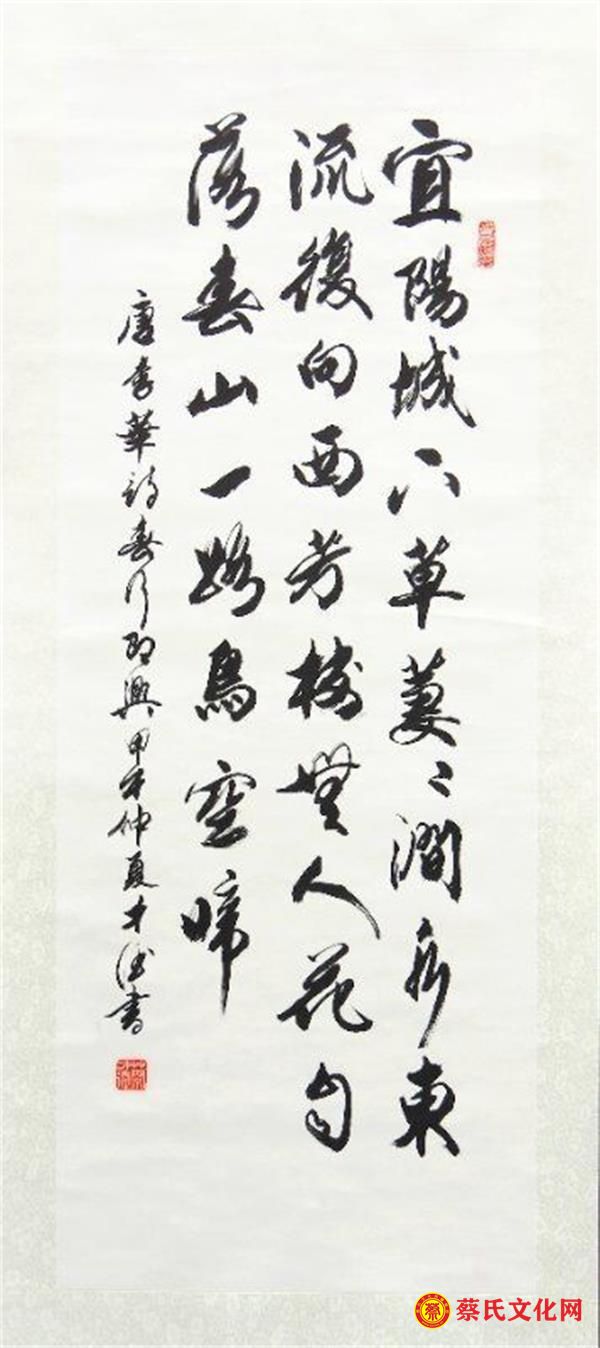 宜陽城下草萋〻澗水東
流復向西芳樹無人花自
落春山一路鳥空啼
唐李華詩春行即興甲午仲夏才書
蔡氏文化网